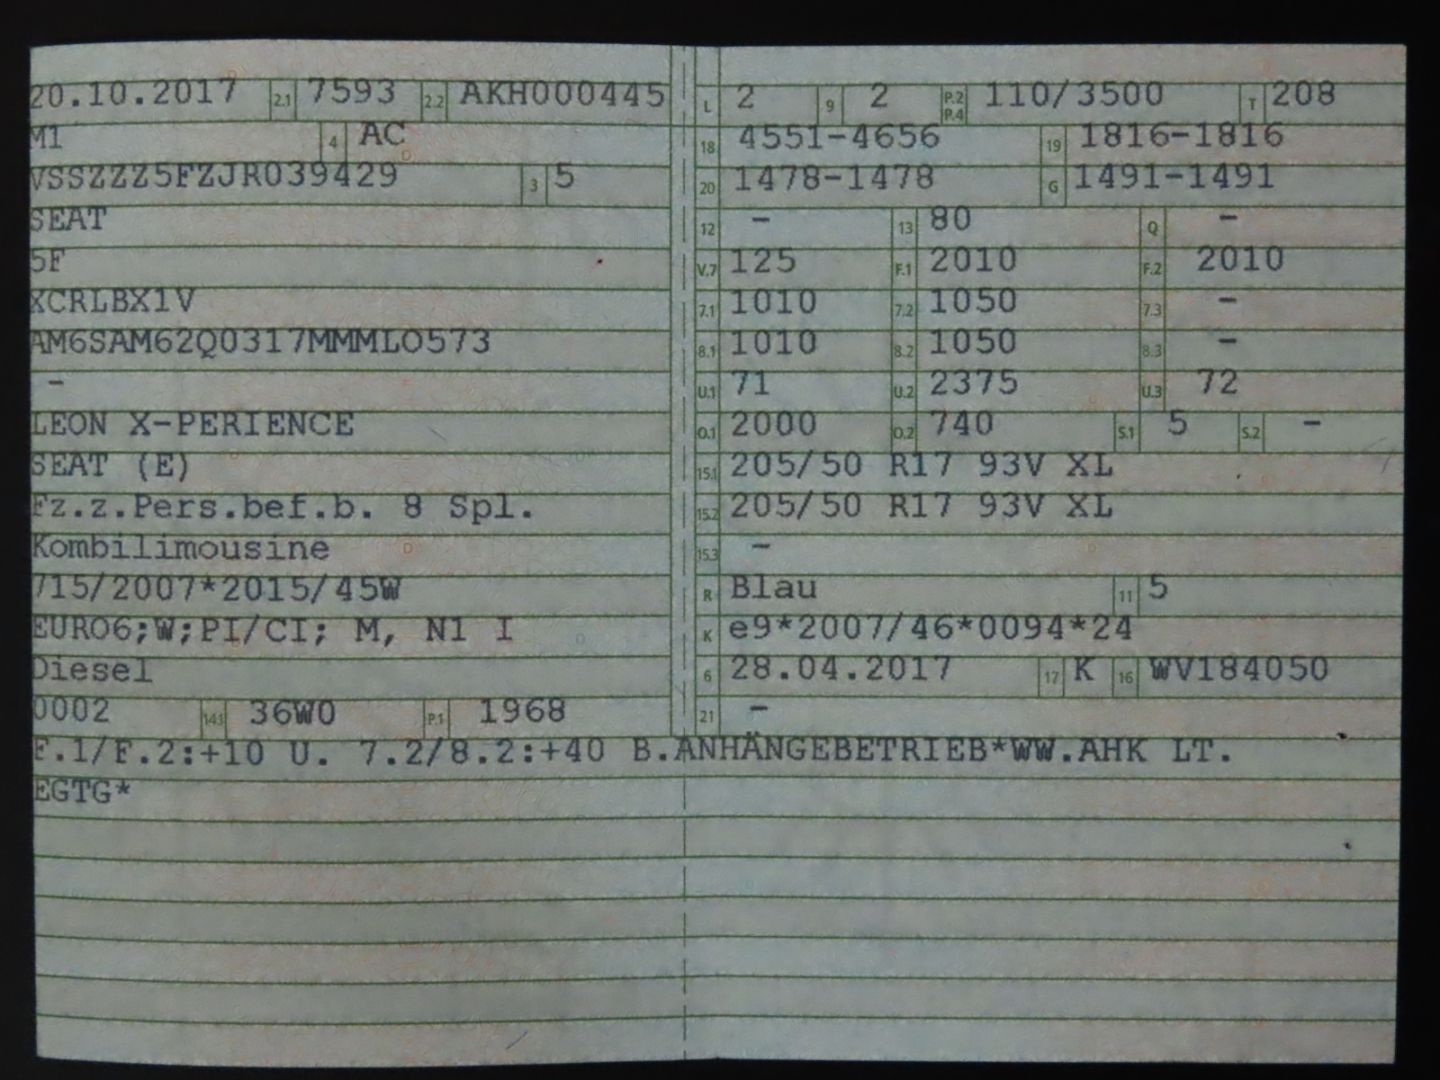 20.10.2017 2.1 7593 2.2 AKH000445
M1 4 AC
VSSZZZ5FZJR039429 3 5
SEAT
5F
XCRLBX1V
AM6SAM62Q0317MMMLO573
-
LEON X-PERIENCE
SEAT (E)
Fz.z.Pers.bef.b. 8 Spl.
Kombilimousine
715/2007*2015/45W
EURO6;W;PI/CI; M, N1 I
Diesel
0002 14.1 36W0 P.1 1968
L 2 9 2 P.2 P.4 110/3500 T 208
18 4551-4656 19 1816-1816
20 1478-1478 G 1491-1491
12 - 13 80 Q -
V.7 125 F.1 2010 F.2 2010
7.1 1010 7.2 1050 7.3 -
8.1 1010 8.2 1050 8.3 -
U.1 71 U.2 2375 U.3 72
O.1 2000 O.2 740 S.1 5 S.2 -
15.1 205/50 R17 93V XL
15.2 205/50 R17 93V XL
15.3 -
R Blau 11 5
K e9*2007/46*0094*24
6 28.04.2017 17 K 16 WV184050
21 -
F.1/F.2:+10 U. 7.2/8.2:+40 B.ANHÄNGEBETRIEB*WW.AHK LT.
EGTG*